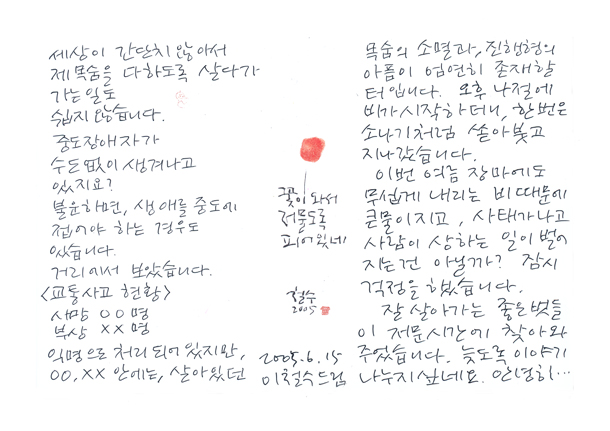 세상이 간단치 않아서
제 목숨을 다하도록 살다가
가는 일도
쉽지 않습니다.
중도장애자가
수도 없이 생겨나고
있지요?
불운하면, 생애를 중도에
접어야 하는 경우도
있습니다.
거리에서 보았습니다.
<교통사고 현황>
사망 00명
부상 XX명
익명으로 처리되어 있지만,
00, XX 안에는, 살아있던
꽃이 와서
저물도록
피어있네
철수
2005
2005.6.15
이철수 드림
목숨의 소멸과, 진행형의
아픔이 엄연히 존재할
터입니다. 오후 나절에
비가 시작하더니, 한번은
소나기처럼 쏟아붓고
지나갔습니다.
이번 여름 장마에도
무섭게 내리는 비 때문에
큰물이 지고, 사태가 나고
사람이 상하는 일이 벌어
지는 건 아닐까? 잠시
걱정을 했습니다.
잘 살아가는 좋은 벗들
이 저문 시간에 찾아와
주었습니다. 늦도록 이야기
나누지 싶네요. 안녕히…